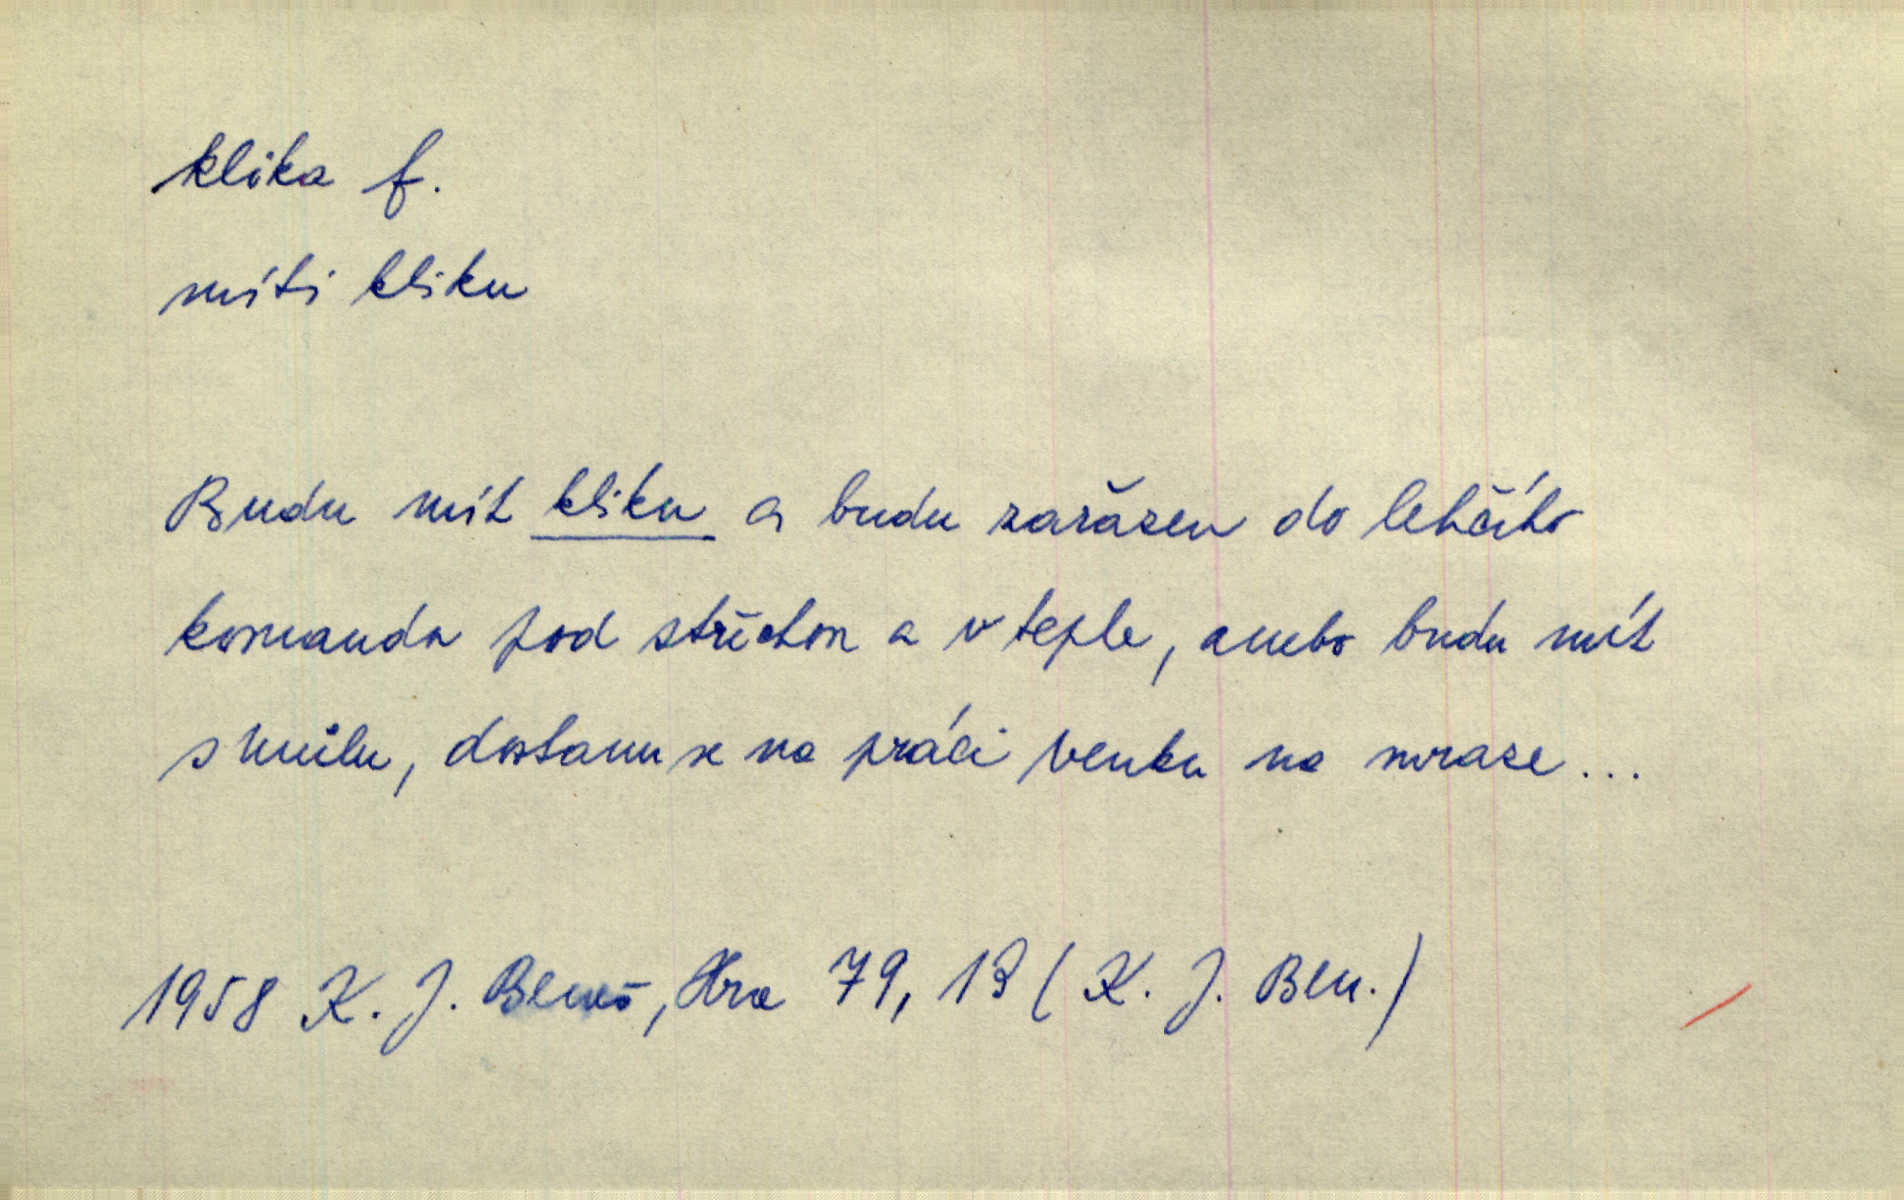 klika f.
míti kliku
Budu mít kliku a budu zařazen do lehčího
komanda pod střechou a v teple, anebo budu mít
smůlu, dostanu se na práci venku na mraze...
1958 K. J. Beneš, Hra 79, 13 (K. J. Ben.)